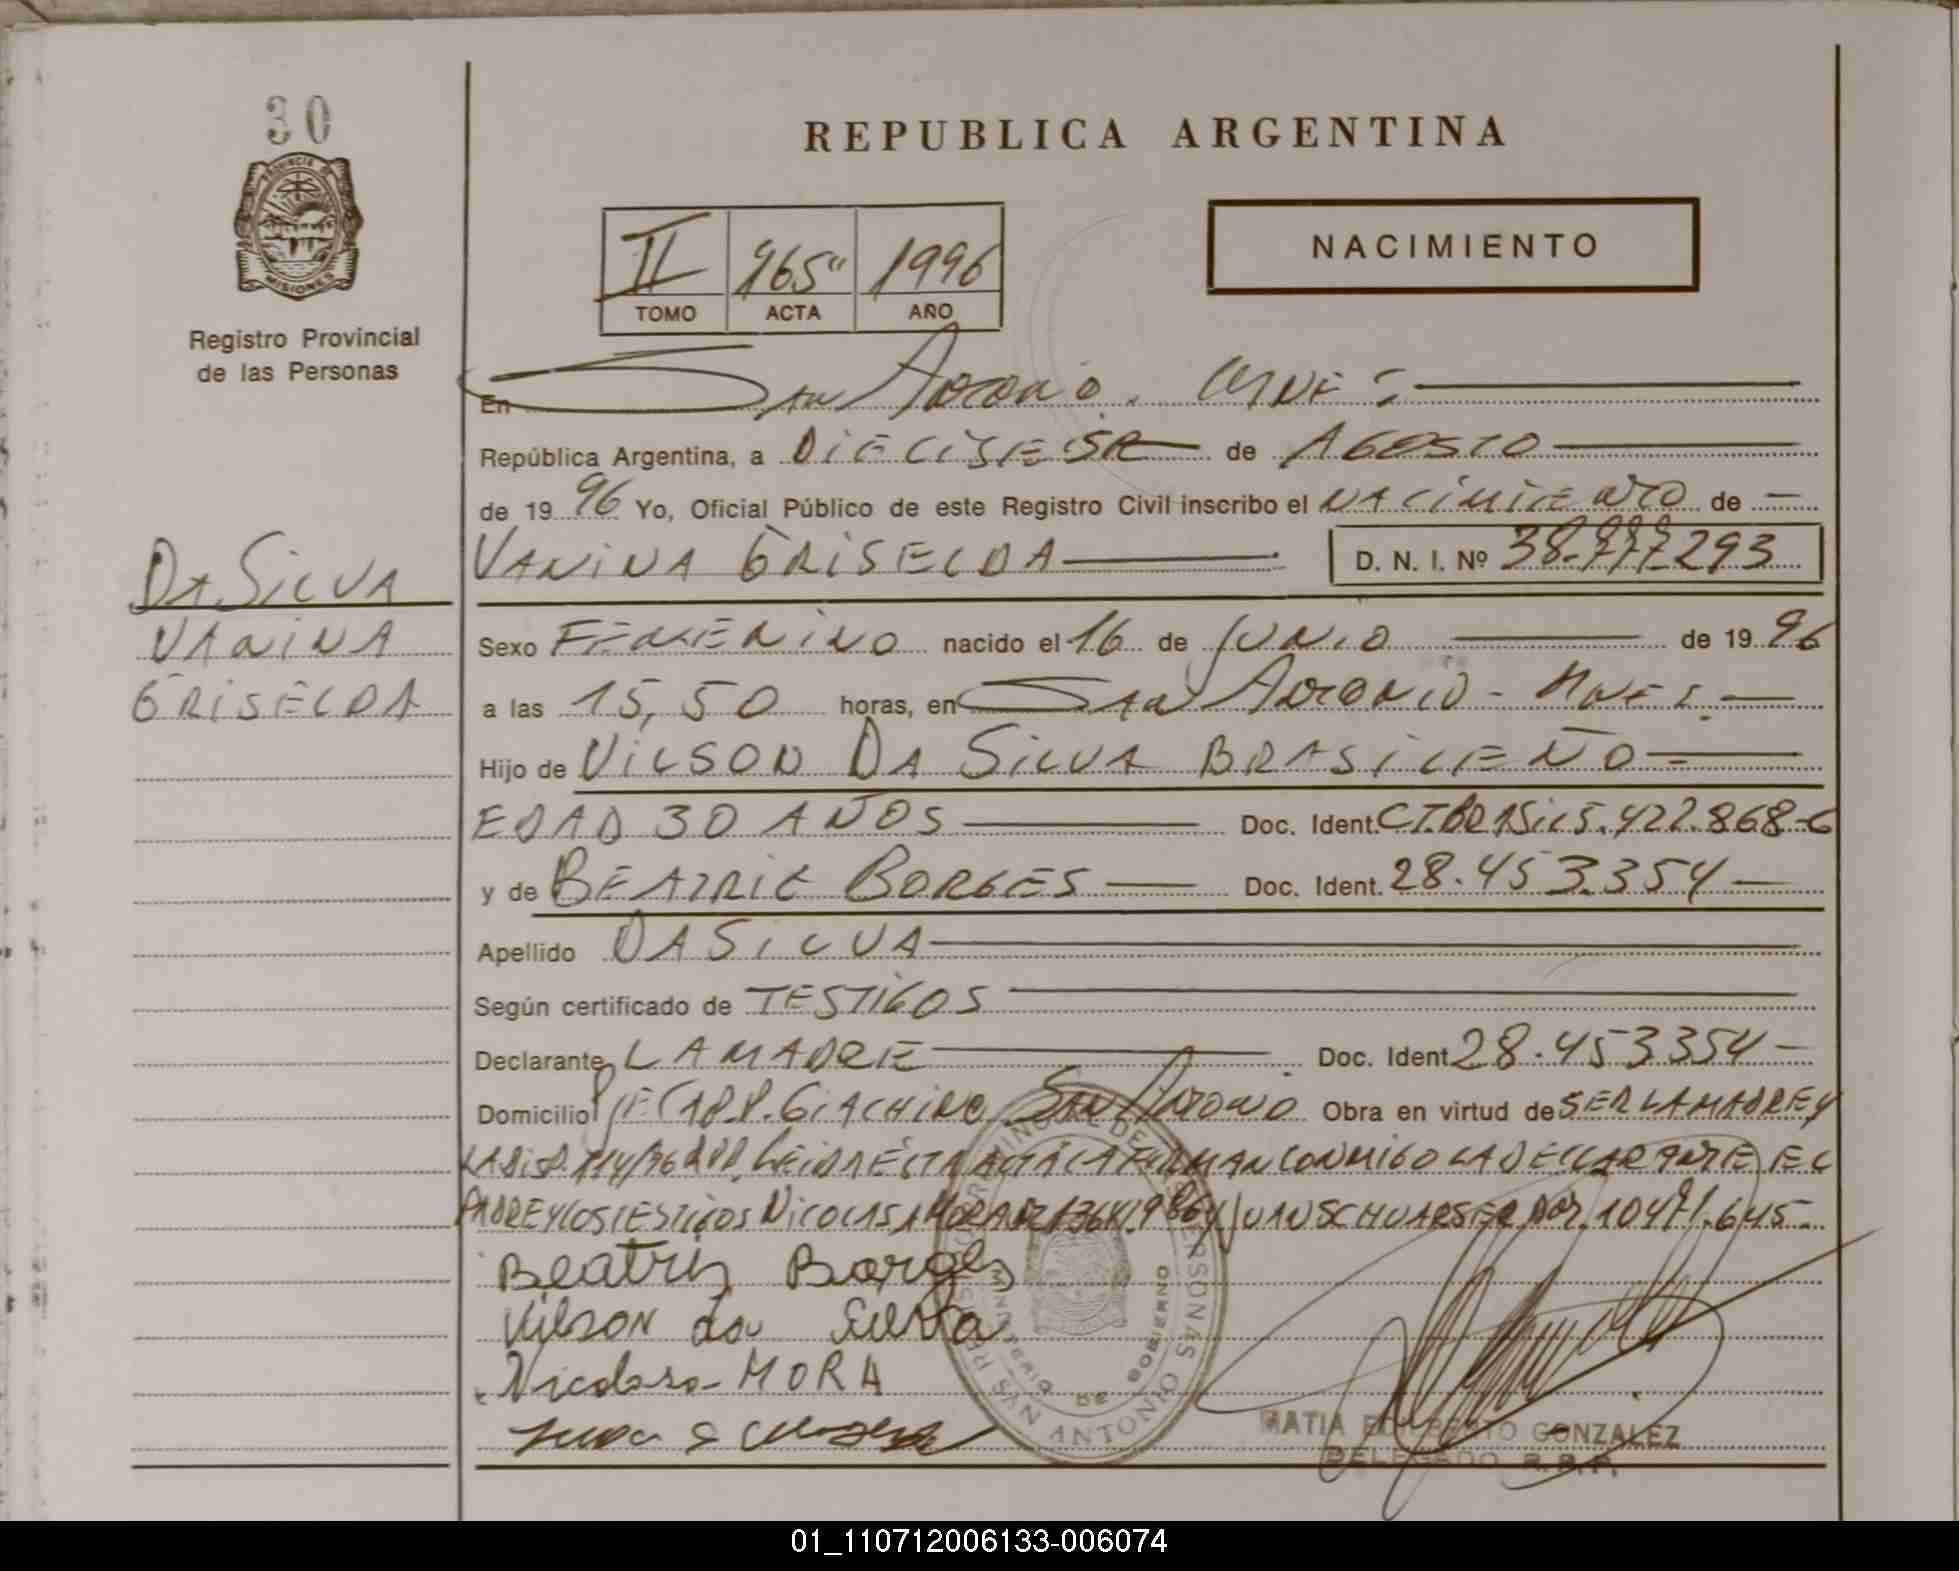 30
PROVINCIA DE
MISIONES
Registro Provincial
de las Personas
REPUBLICA ARGENTINA
II 165" 1996
TOMO ACTA AÑO
NACIMIENTO
En San Antonio. Mnes
República Argentina, a DIECISIETE de AGOSTO
de 19 96 Yo, Oficial Público de este Registro Civil inscribo el NACIMIENTO de
VANINA GRISELDA D. N. I. Nº 38.777.293
DA SILVA
VANINA
GRISELDA
Sexo FEMENINO nacido el 16 de JUNIO de 19 96
a las 15,50 horas, en SAN ANTONIO - MNES.
Hijo de VILSON DA SILVA BRASILEÑO
EDAD 30 AÑOS Doc. Ident. C.I.BRASIL 5.422.868-6
y de BEATRIZ BORGES Doc. Ident. 28.453.354
Apellido DA SILVA
Según certificado de TESTIGOS
Declarante LA MADRE Doc. Ident 28.453354
Domicilio GIACHINO SAN ANTONIO Obra en virtud de SER LA MADRE Y
LA DISP. 114/96 LEIDA ESTA ACTA LA FIRMAN CONMIGO LA DECLARANTE EL
PADRE Y LOS TESTIGOS NICOLASA MORA Y JUAN
Beatris Borges
Vilson da Silva
Nicolasa MORA
SAN ANTONIO
MATIA EDILBERTO GONZALEZ
DELEGADO R.P.P.
01_110712006133-006074